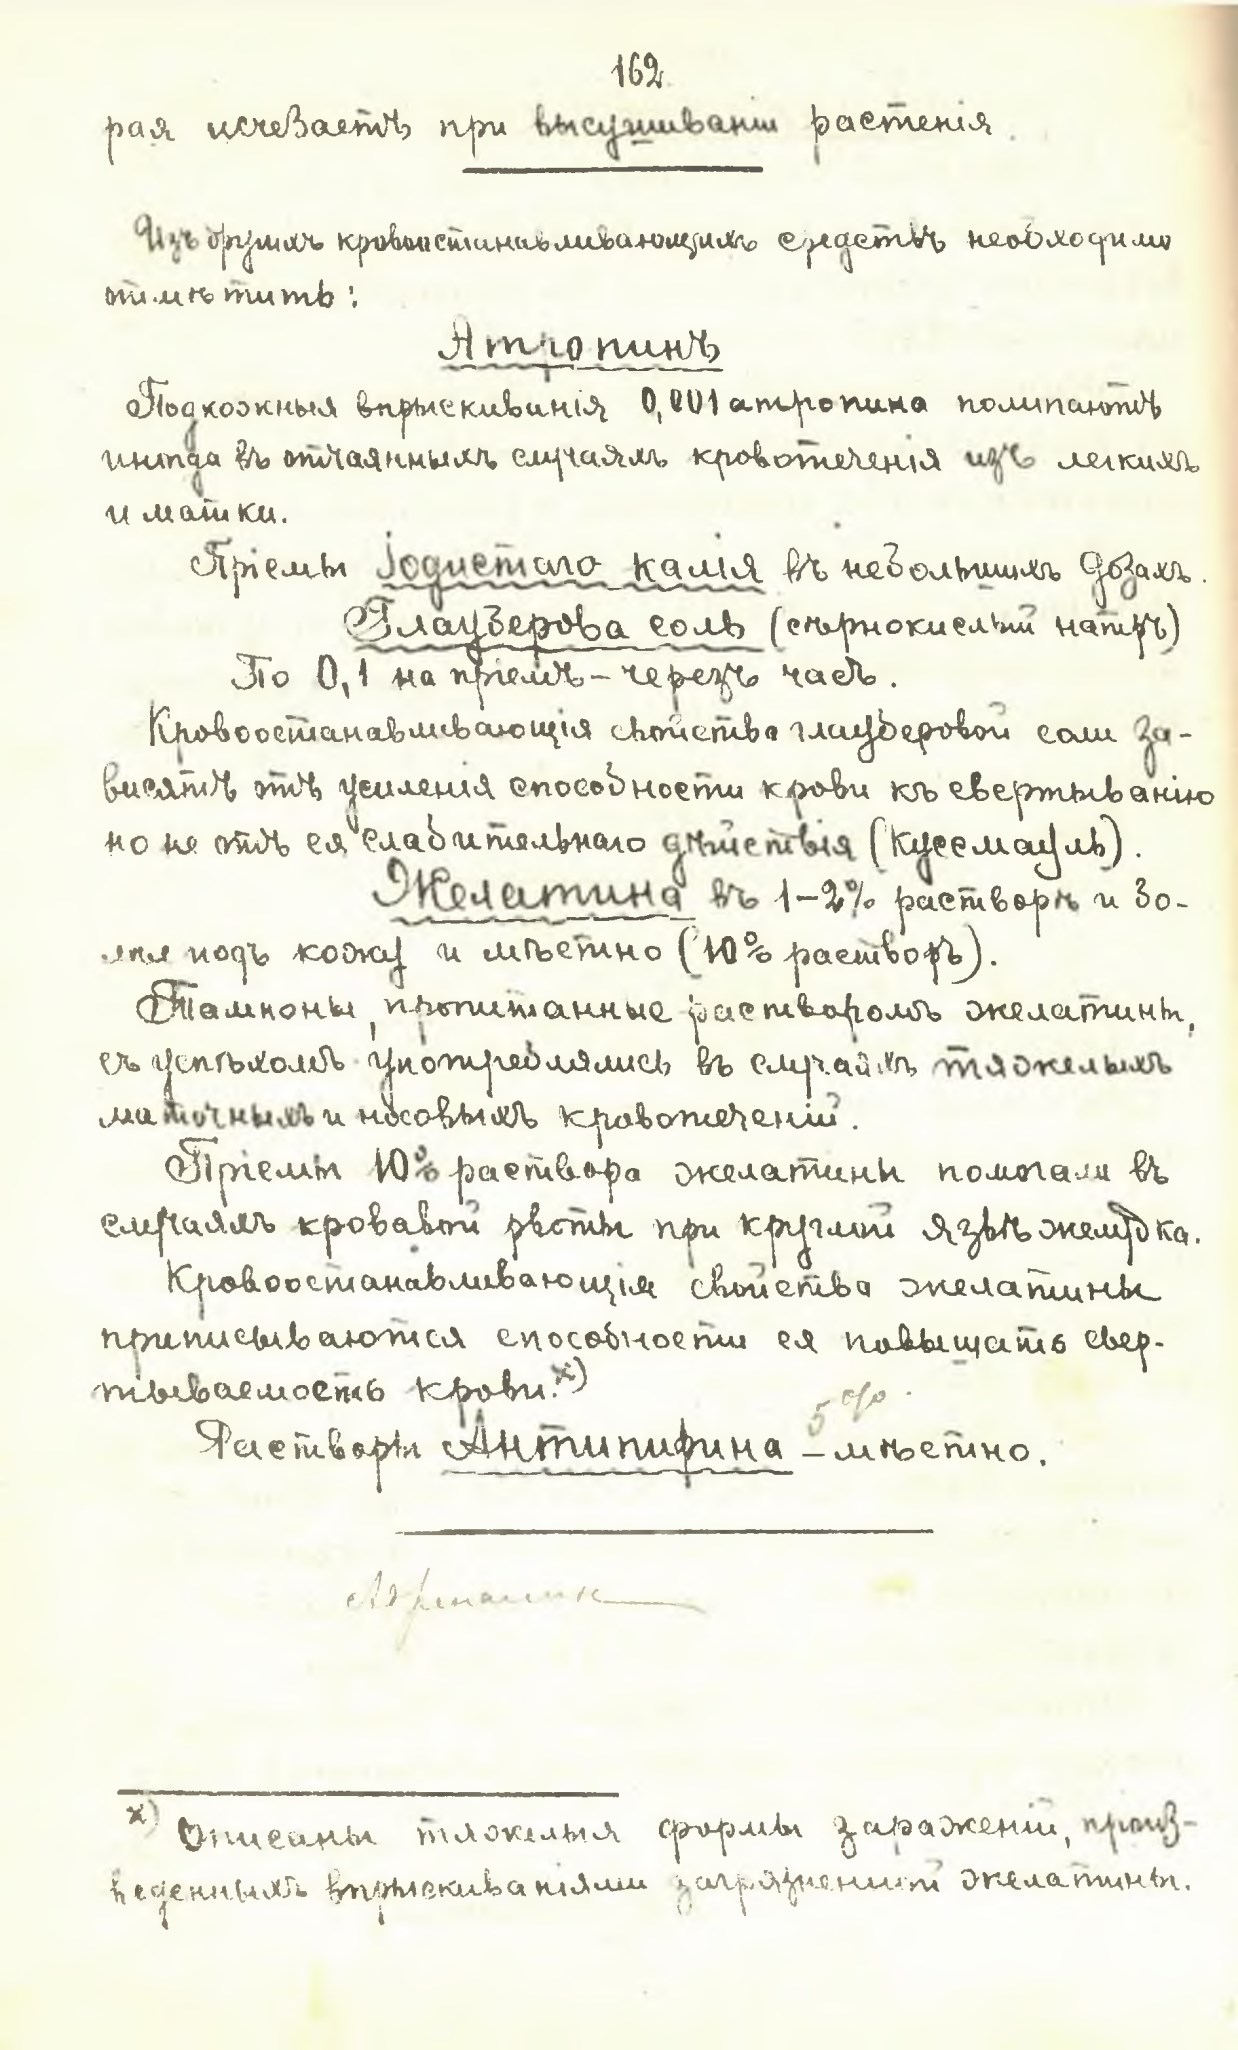 162
рая исчезаетъ при высушиваніи растенія.
Изъ другихъ кровоостанавливающихъ средствъ необходимо
отмѣтить:
Атропинъ
Подкожныя впрыскиванія 0,001 атропина помогаютъ
иногда въ отчаянныхъ случаяхъ кровотеченія изъ легкихъ
и матки.
Пріемы іодистаго калія въ небольшихъ дозахъ.
Глауберова соль (сѣрнокислый натръ)
По 0,1 на пріемъ – черезъ часъ.
Кровоостанавливающія свойства глауберовой соли за-
висятъ отъ усиленія способности крови къ свертыванію
но не отъ ея слабительнаго дѣйствія (Куссмауль).
Желатина въ 1–2% растворѣ и
подъ кожу и мѣстно (10% растворъ).
Тампоны, пропитанные растворомъ желатины,
съ успѣхомъ употреблялись въ случаяхъ тяжелыхъ
маточныхъ и носовыхъ кровотеченій.
Пріемы 10% раствора желатины помогали въ
случаяхъ кровавой рвоты при круглой язвѣ желудка.
Кровоостанавливающія свойства желатины
приписываются способности ея повышать свер-
тываемость крови.х)
5%
Растворы Антипирина – мѣстно.
Адреналин
х) Описаны тяжелыя формы зараженій, произ-
веденныхъ впрыскиваніями загрязненной желатины.